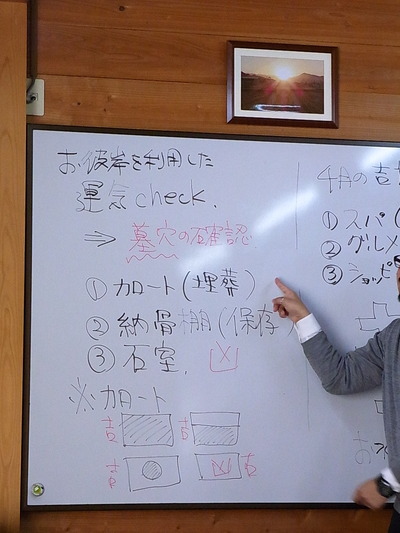 お彼岸を利用した
運気check.
⇒ 墓穴の確認
① カロート(埋葬)
② 納骨棚(保存)
③ 石室.
※カロート
吉 吉
吉 吉
4月の吉
① スパ(
② グルメ
③ ショッピ
お水